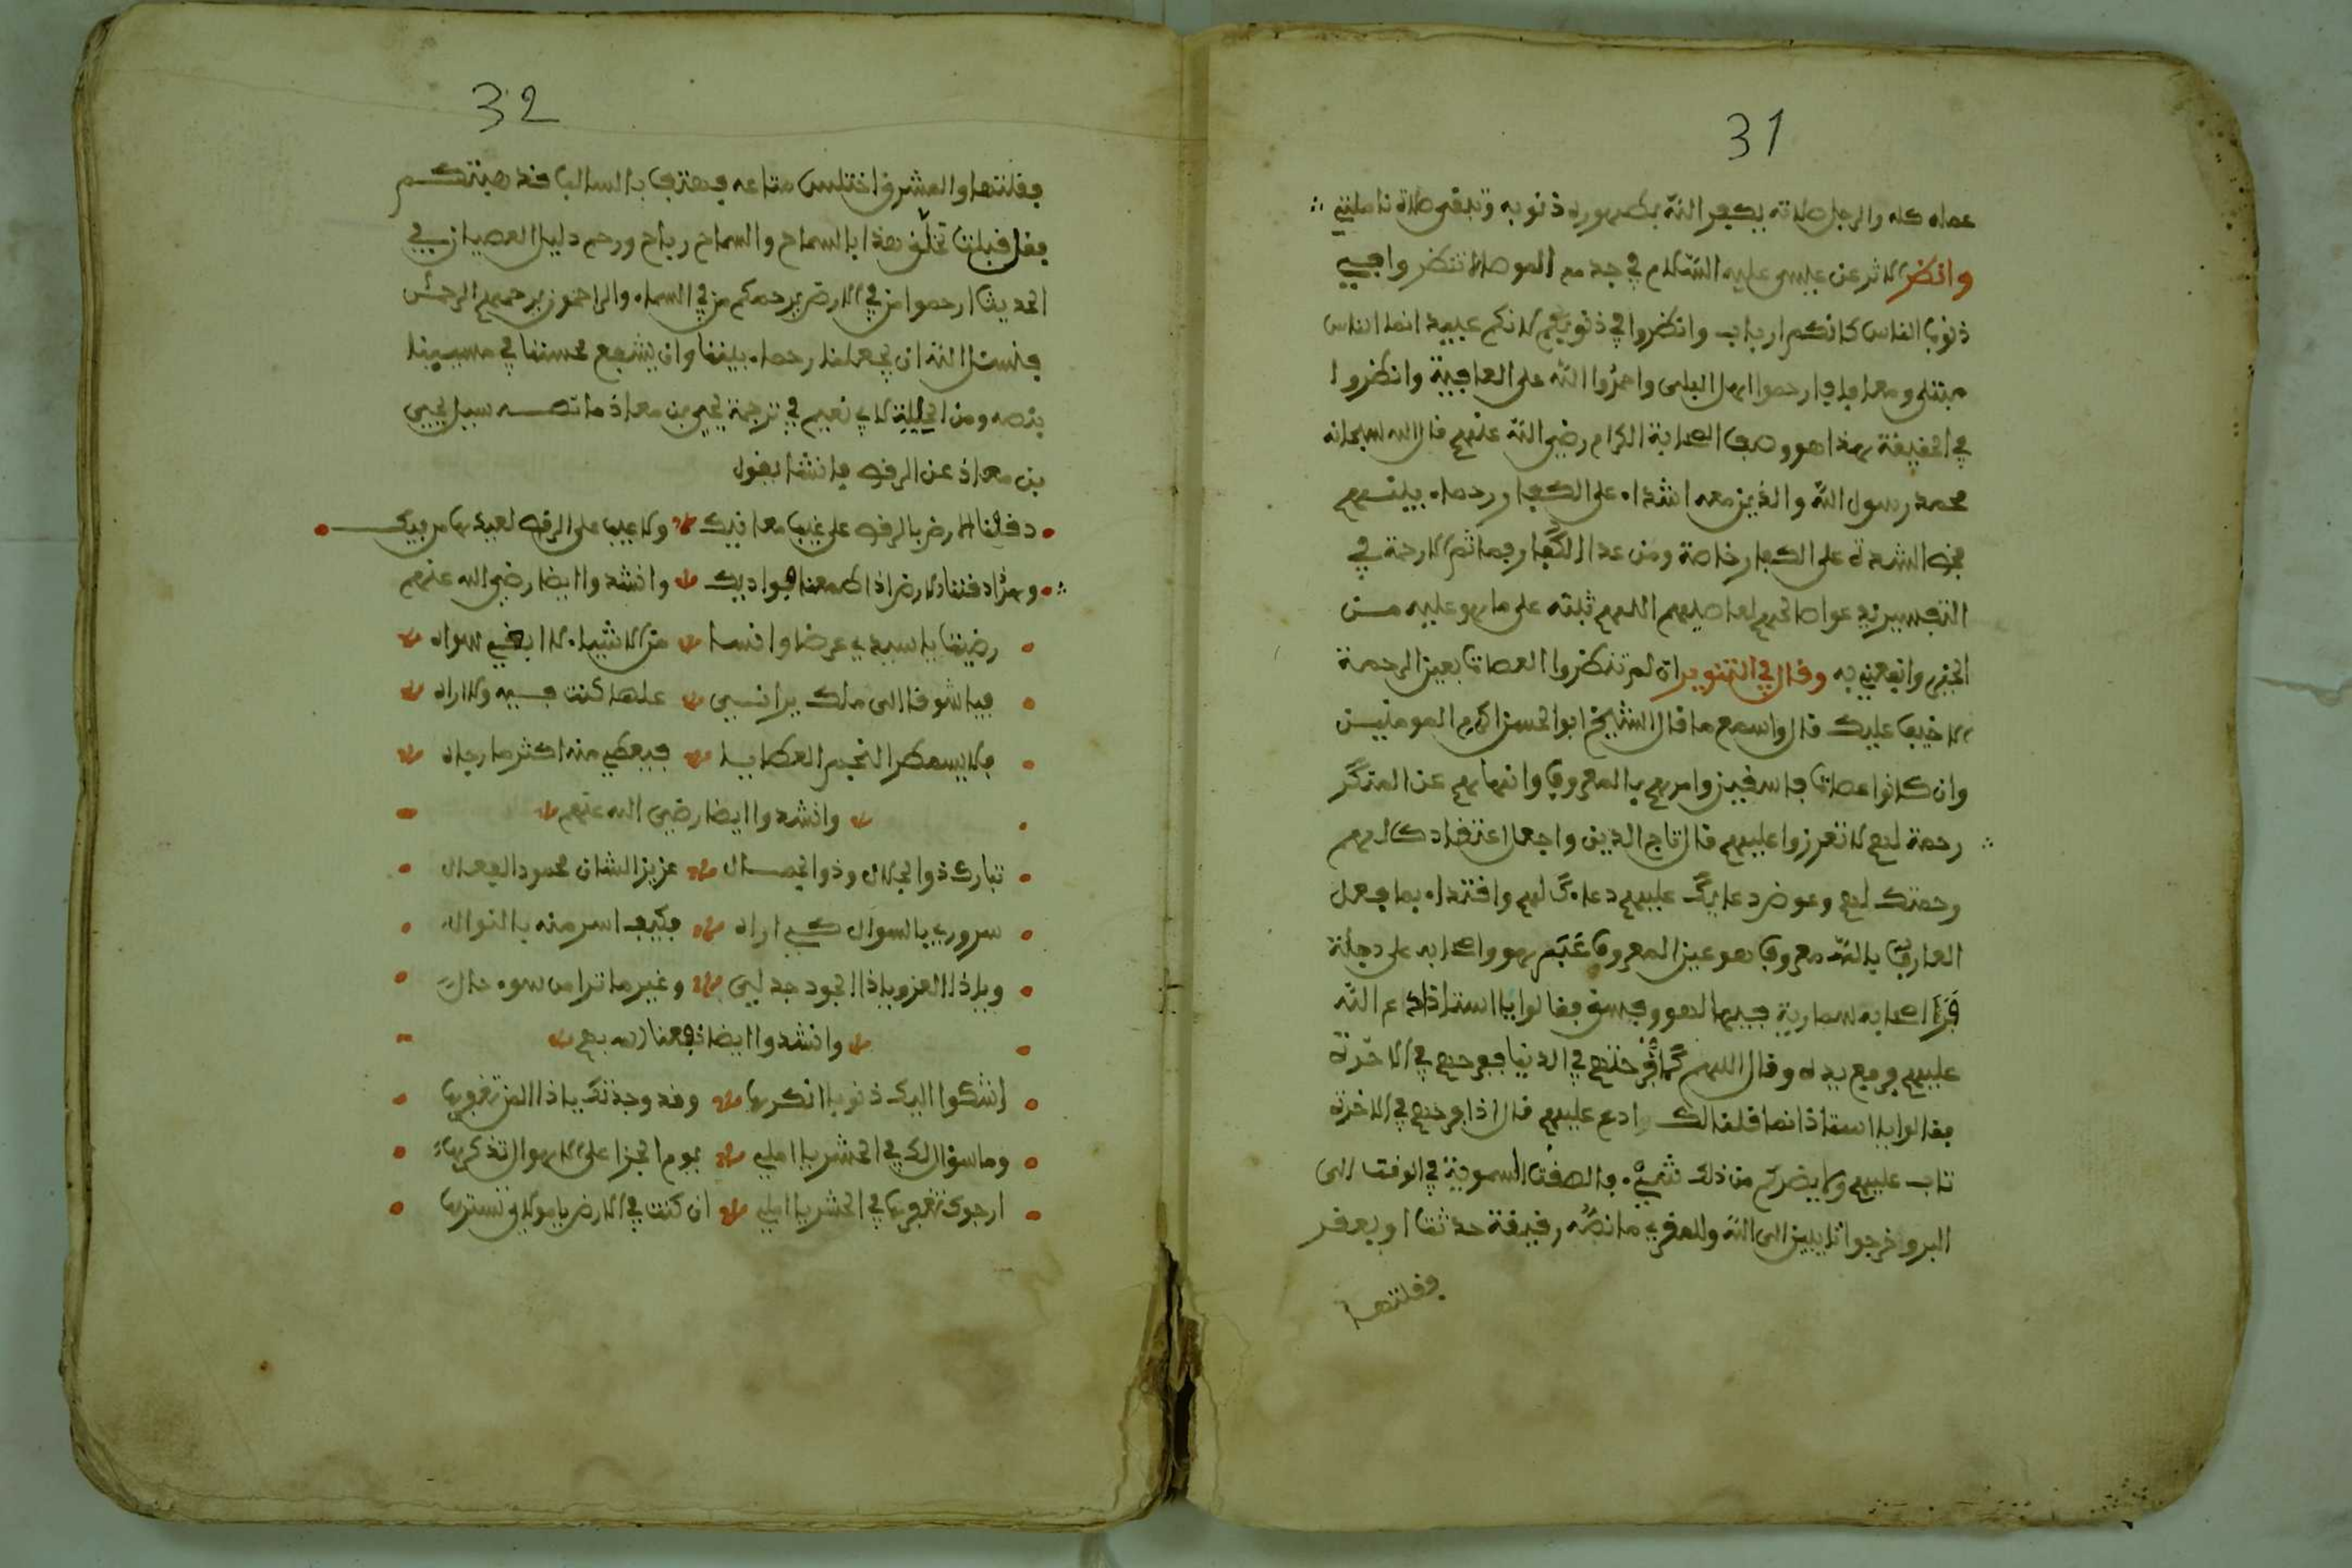 31
عمله كله والرجل صلاته يكفر الله بطهوره ذنوبه وتبقى صلاته ناملتين
وانظر الاثر عن عيسى عليه السّلام في جد مع الموطا لا تنظر وا في
ذنوب الناس كانكم ارباب وانظروا في ذنوبكم لانكم عبيد انما الناس
مبتلى ومعافا فارحموا اهل البلى واحمدوا الله على العافية وانظروا
في الحقيقة هذا هو وصف الصحابة الكرام رضي الله عنهم قال الله سبحانه
محمد رسول الله والذين معه اشداء على الكفار رحماء بينهم
فخص الشدة على الكفار خاصة ومن عدا الكفار فما ثم الا رحمة في
التفسير عواصاتهم لعاصيهم اللهم ثبته على ما هو عليه من
الخير وانفعني به وقال في التنوير اة لم تنظروا العصاة بعين الرحمة
الاخيف عليك قال واسمع ما قال الشيخ ابو الحسن اكرم المومنين
وان كانوا عصاة فاسقين وامرهم بالمعروف وانهاهم عن المنكر
رحمة لهم لا تعززوا عليهم قال تاج الدين واجعل اعتقادك لهم
رحمتك لهم وعوض دعايك عليهم دعاءك لهم واقتداء بما فعل
العارف بالله معروف هو عين المعروف عبَر هو واصحابه على دجلة
فرأ اصحابه سمارية فيها لهو وفسق فقالوا يا استاذ ادع الله
عليهم فرفع يده وقال اللهم كما فرّحتهم في الدنيا ففرحهم في الاخرة
فقالوا يا استاذ انما قلنا لك ادع عليهم قال اذا فرحهم في الاخرة
تاب عليهم ولا يضركم من ذلك شيء فالصقت السموية في الوقت الى
البر وخرجوا تايبين الى الله وللمقري ما نصّه رقيقة حدثت او يعفر
فقلتها
32
فقلتها والعشرة اختلس متاعه فهتف بالسالب قد هبتكم
فقل قبلت تخلّق هذا بالسماح والسماح رباح ورحم دليل العصيان في
الحديث ارحموا من في الارض يرحمكم من في السماء والراحمون يرحمهم الرحمن
فنسئل الله ان يجعلنا رحماء بيننا وان يشفع محسننا في مسيينا
بنصه ومن الحلية لابي نعيم في ترجمة يحيى بن معاذ ما نصه سيل يحيى
بن معاذ عن الرقص فانشا يقول
دققنا الارض بالرقص على غيب معانيك ولا عيب على الرقص لعبد هايم فيك
وهذا دقنا للارض اذا طفنا بواديك وانشدوا ايضا رضي الله عنهم
رضيت يا سيدي عرضا وانسا من الاشياء لا ابغي سواه
فيا شوقا الى ملك يراني على ما كنت فيه ولا اراه
فلا يسمكر النجم العطايا فيعطي منه اكثر ما رجاه
وانشدوا ايضا رضي الله عنهم
تبارك ذو الجلال وذو الخصال عزيز الشان محمود الفعال
سروري بالسوال كي اراه فكيف اسر منه بالنوال
ويا ذا العز ويا ذا الجود جد لي وغير ما ترا من سوء حالي
وانشدوا ايضا نفعنا الله بهم
اشكوا اليك ذنوبا انكرها وقد وجدتك يا ذا المن تغفرها
وما سؤالك في الحشر يا املي يوم الجزا على الاهوال تذكرها
ارجوك تغفرها في الحشر يا املي ان كنت في الارض يا مولاي تسترها